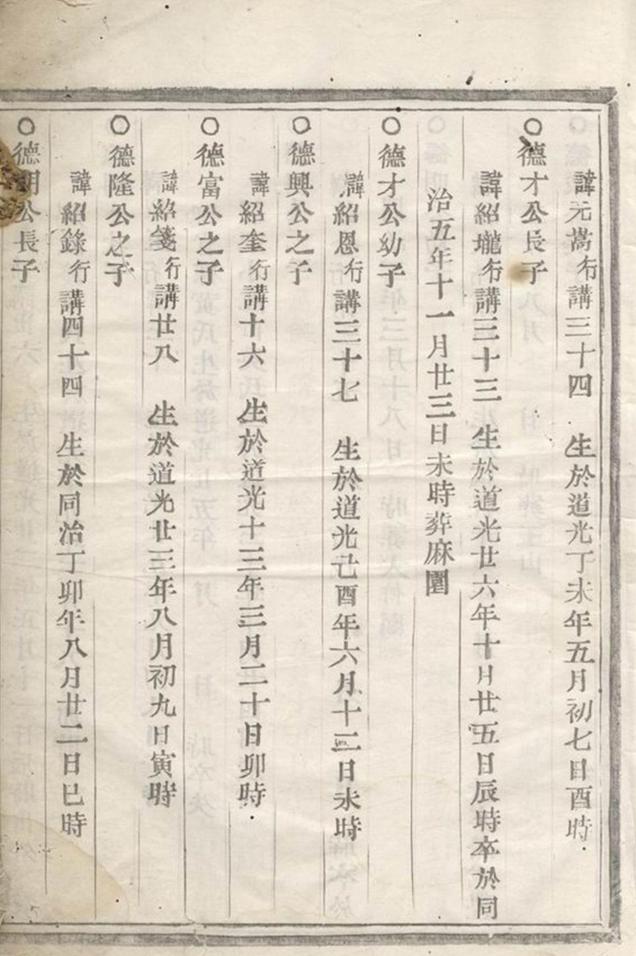 諱元嵩行講三十四　生於道光丁未年五月初七日酉時
○德才公長子
諱紹瓏行講三十三　生於道光廿六年十月廿五日辰時卒於同
治五年十一月廿三日未時葬麻園
○德才公幼子
諱紹恩行講三十七　生於道光己酉年六月十二日未時
○德興公之子
諱紹奎行講十六　生於道光十三年三月二十日卯時
○德富公之子
諱紹箋行講廿八　生於道光廿三年八月初九日寅時
○德隆公之子
諱紹錄行講四十四　生於同治丁卯年八月廿二日巳時
○德明公長子